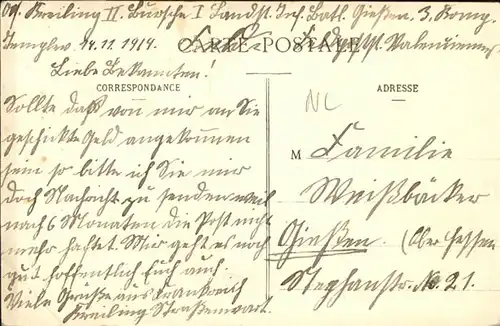 Kreiling II. Bursche I Landst. Inf. Batl. Gießen. 3. Komp.
Templeuv. 14.12.1914. CARTE POSTALE Valenciennes
Liebe Bekannten!
CORRESPONDANCE
Sollte daß von mir an Sie
geschickte Geld angekommen
sein so bitte ich Sie mir
doch Nachricht zu senden weil
nach 6 Monaten die Post nicht
mehr haftet. Mir geht es noch
gut hoffentlich Euch auch.
Viele Grüße aus Frankreich
Kreiling Straßenwart.
NL
ADRESSE
M Familie
Weißbäcker
Gießen. (Ober Hessen
Stephanstr. No. 21.